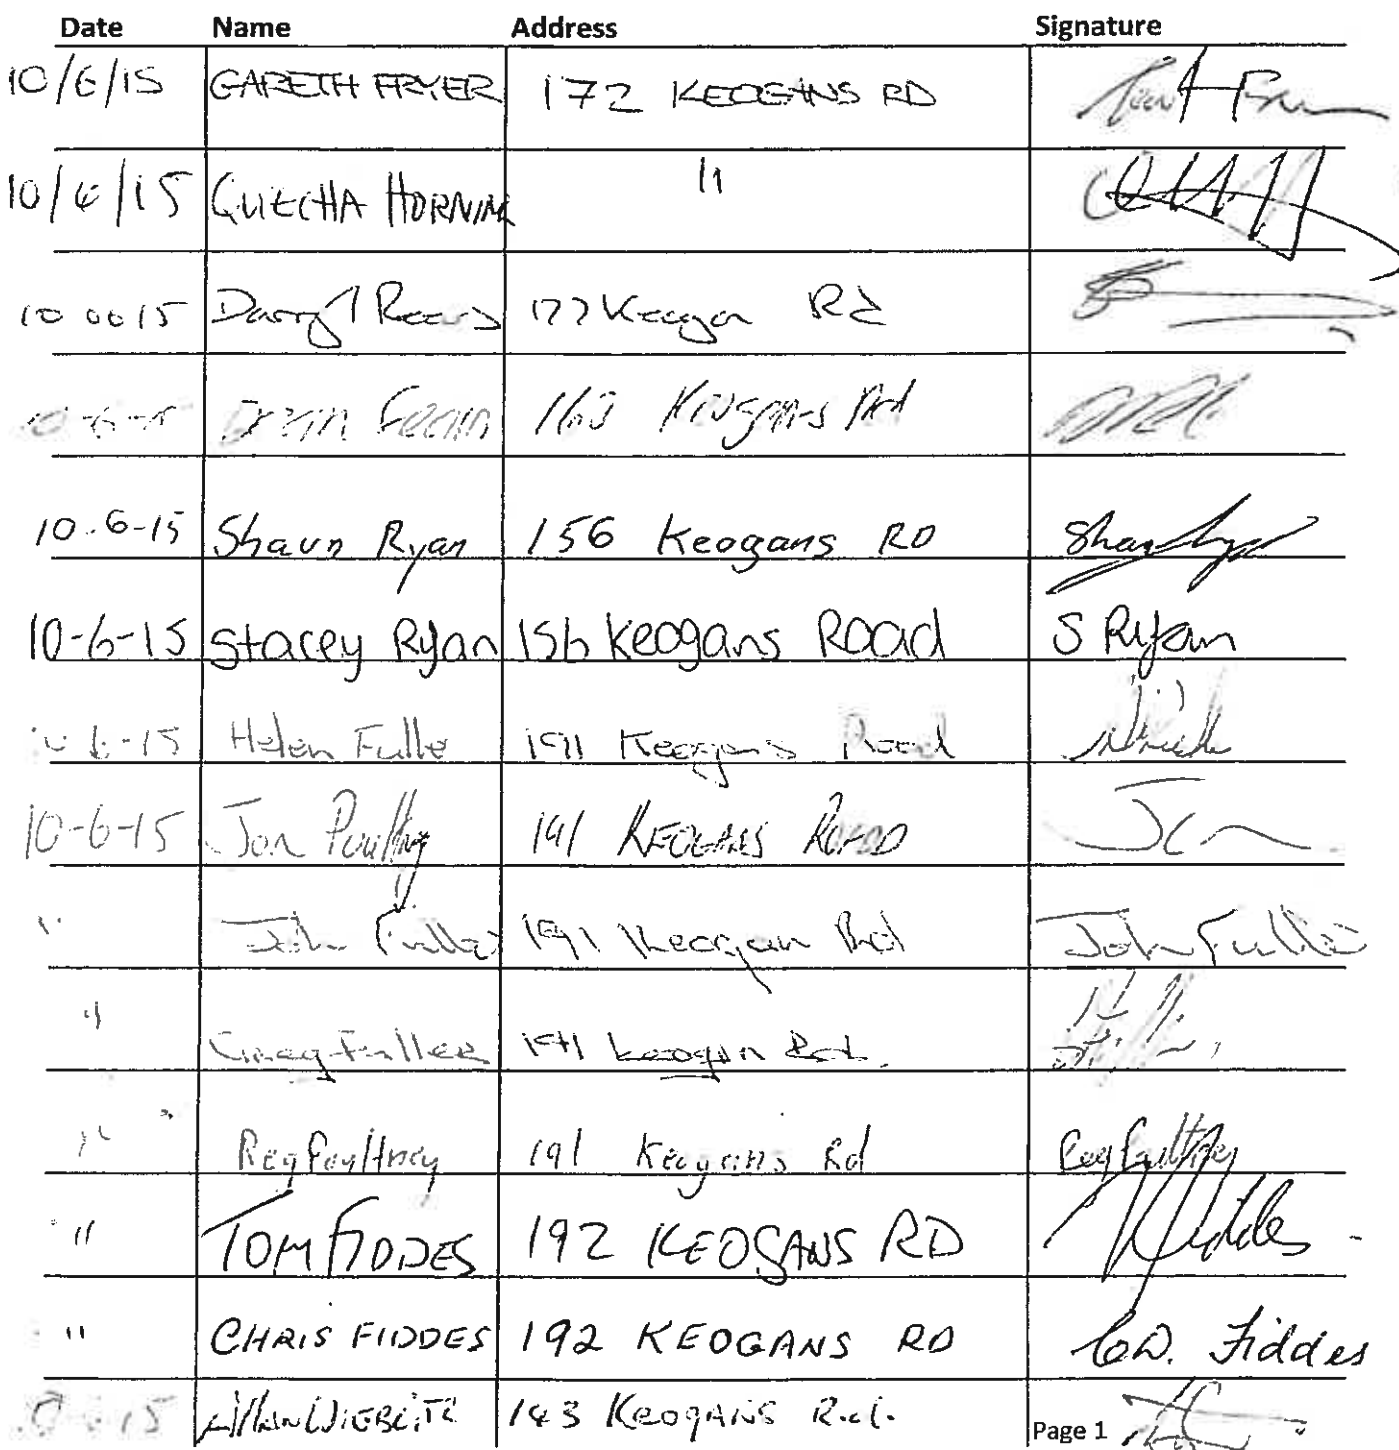 Date Name Address Signature
10/6/15 GARETH FRYER 172 KEOGANS RD
10/6/15 HORNING "
10 06 15 Darryl 177 Keogan Rd
10-6-15 Keogans Rd
10-6-15 Shaun Ryan 156 Keogans RD
10-6-15 Stacey Ryan 156 Keogans Road S Ryan
10-6-15 Helen Fuller 191 Keogans Road
10-6-15 Jon 191 KEOGANS ROAD
" John Fuller 191 Keogan Rd John Fuller
" Greg Fuller 191 Keogan Rd.
" Reg 191 Keogans Rd
" TOM FIDDES 192 KEOGANS RD Fiddes
" CHRIS FIDDES 192 KEOGANS RD C.D. Fiddes
143 KEOGANS Rd.
Page 1